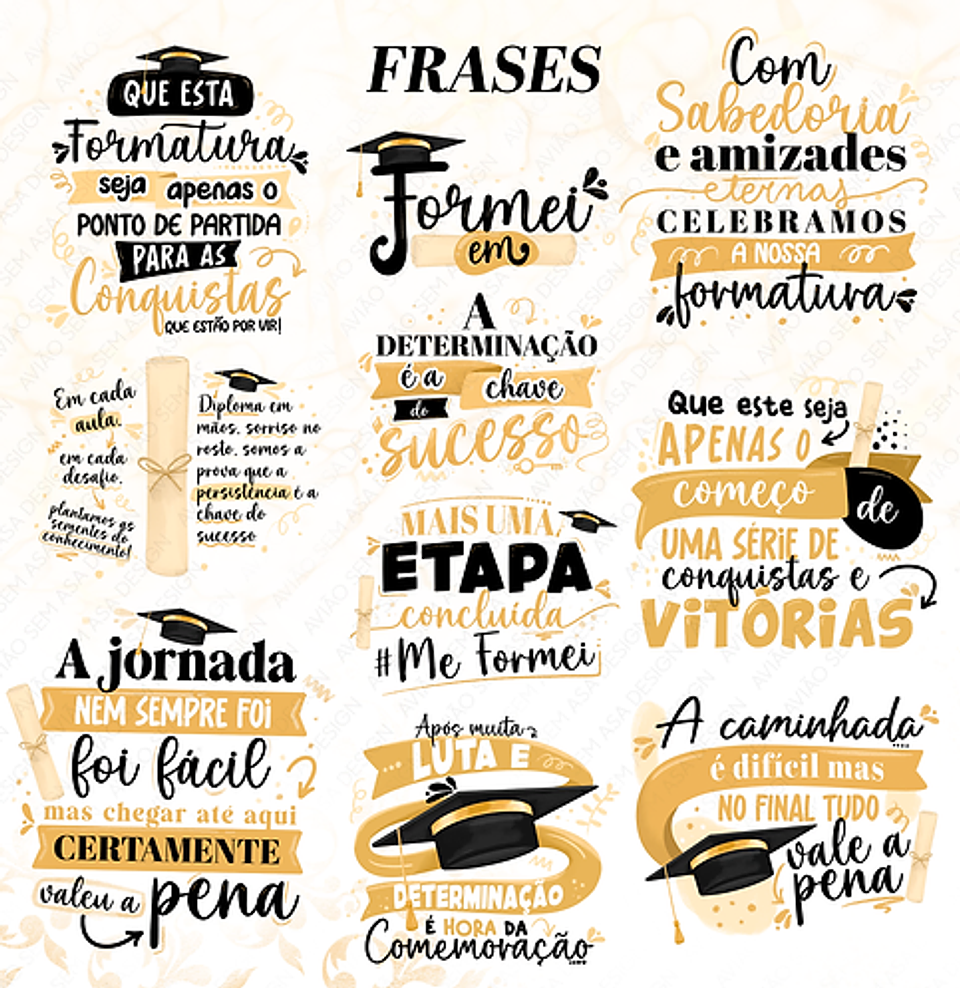 FRASES
QUE ESTA
Formatura
seja apenas o
PONTO DE PARTIDA
PARA AS
Conquistas
QUE ESTÃO POR VIR!
Em cada
aula.
em cada
desafio.
plantamos as
sementes do
conhecimento!
Diploma em
mãos, sorriso no
rosto, somos a
prova que a
persistência é a
chave do
sucesso
A jornada
NEM SEMPRE FOI
foi fácil
mas chegar até aqui
CERTAMENTE
valeu a pena
Formei
em
A
DETERMINAÇÃO
é a chave
do
sucesso
MAIS UMA
ETAPA
concluída
#Me Formei
Após muita
LUTA E
DETERMINAÇÃO
É HORA DA
Comemoração
Com
Sabedoria
e amizades
eternas
CELEBRAMOS
A NOSSA
formatura
Que este seja
APENAS O
começo de
UMA SÉRIE DE
conquistas e
VITÓRIAS
A caminhada
é difícil mas
NO FINAL TUDO
vale a
pena